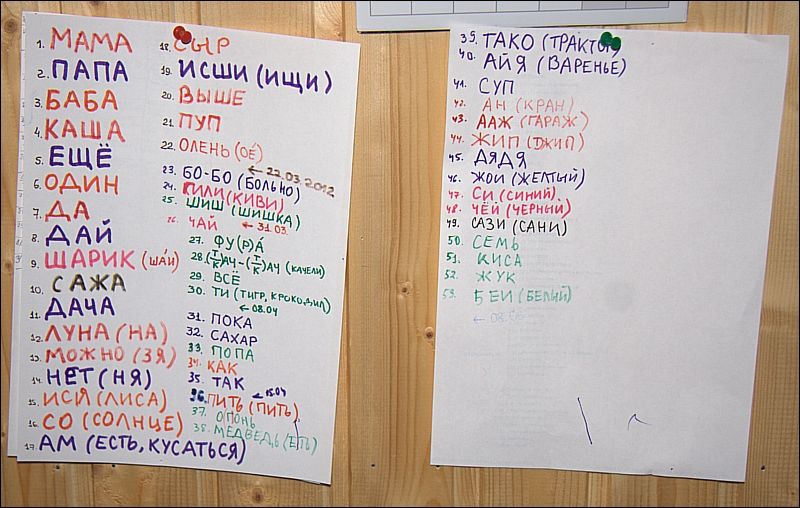 1. МАМА
2. ПАПА
3. БАБА
4. КАША
5. ЕЩЁ
6. ОДИН
7. ДА
8. ДАЙ
9. ШАРИК (ШАИ)
10. САЖА
11. ДАЧА
12. ЛУНА (НА)
13. МОЖНО (ЗЯ)
14. НЕТ (НЯ)
15. ИСЯ (ЛИСА)
16. СО (СОЛНЦЕ)
17. АМ (ЕСТЬ, КУСАТЬСЯ)
18. СЫР
19. ИСШИ (ИЩИ)
20. ВЫШЕ
21. ПУП
22. ОЛЕНЬ (ОЕ́)
← 22.03.2012
23. БО-БО (БОЛЬНО)
24. ГИЛИ (КИВИ)
25. ШИШ (ШИШКА)
26. ЧАЙ ← 31.03.
27. ФУ(Р)А́
28. (Т/К)АЧ-(Т/К)АЧ (КАЧЕЛИ)
29. ВСЁ
30. ТИ (ТИГР, КРОКОДИЛ)
← 08.04
31. ПОКА
32. САХАР
33. ПОПА
34. КАК
35. ТАК
← 15.04
36. ПИТЬ (ПИТЬ)
37. ОПОНЬ
38. МЕДВЕДЬ (ЕТЬ)
39. ТАКО (ТРАКТОР)
40. АЙЯ (ВАРЕНЬЕ)
41. СУП
42. АН (КРАН)
43. ААЖ (ГАРАЖ)
44. ЖИП (ДЖИП)
45. ДЯДЯ
46. ЖОИ (ЖЕЛТЫЙ)
47. СИ (СИНИЙ).
48. ЧЁЙ (ЧЕРНЫЙ)
49. САЗИ (САНИ)
50. СЕМЬ
51. КИСА
52. ЖУК
53. БЕИ (БЕЛЫЙ)